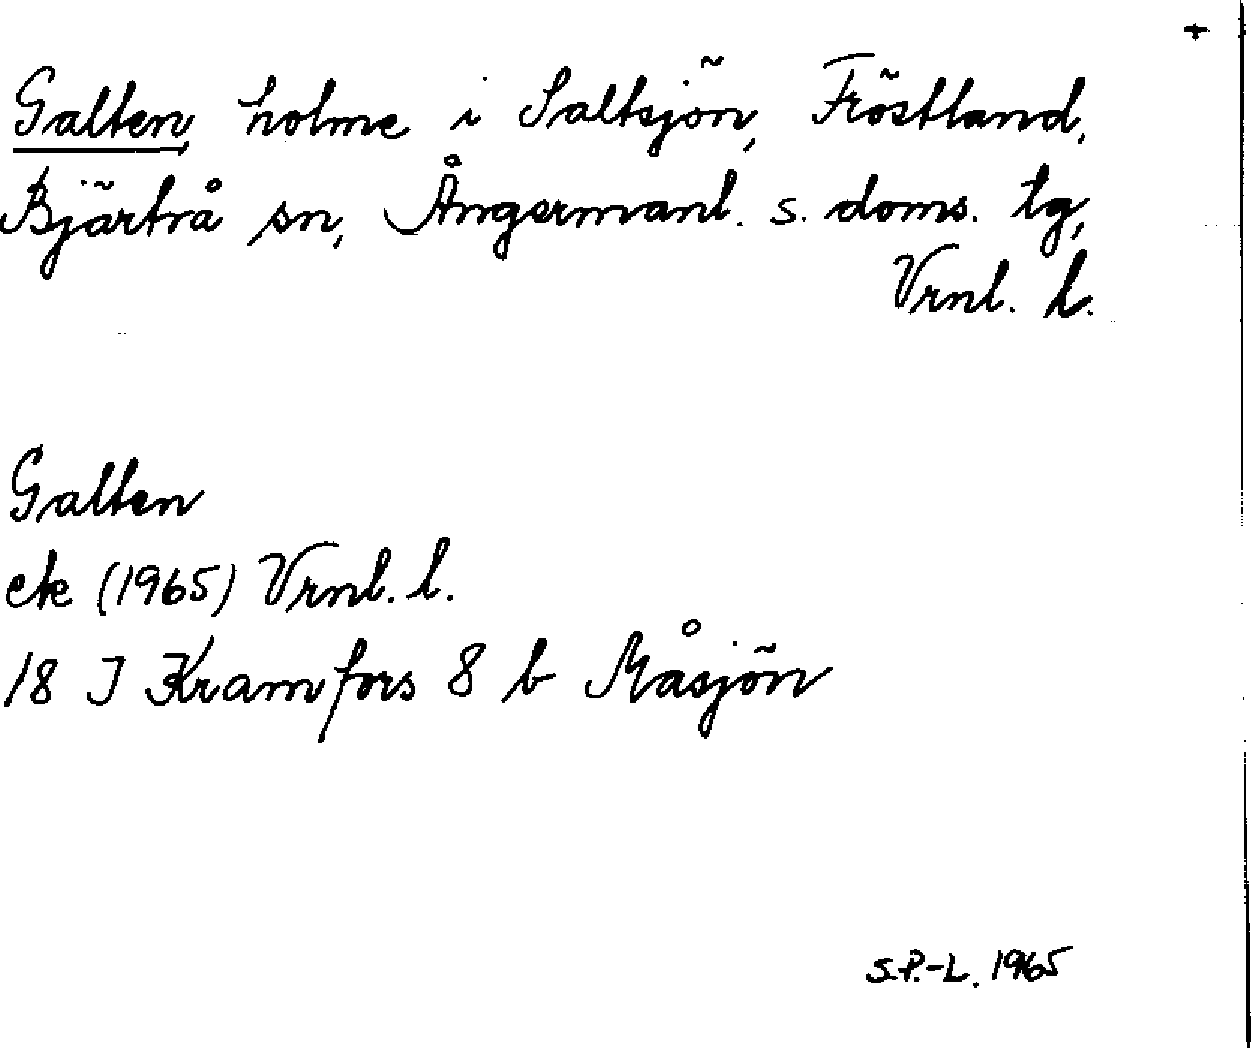 +
Galten, holme i Saltsjön, Fröstland,
Bjärtrå sn, Ångermanl. s. doms. tg,
Vrnl. l.
Galten
ek (1965) Vrnl. l.
18 I Kramfors 8 b Måsjön
S.P.-L. 1965